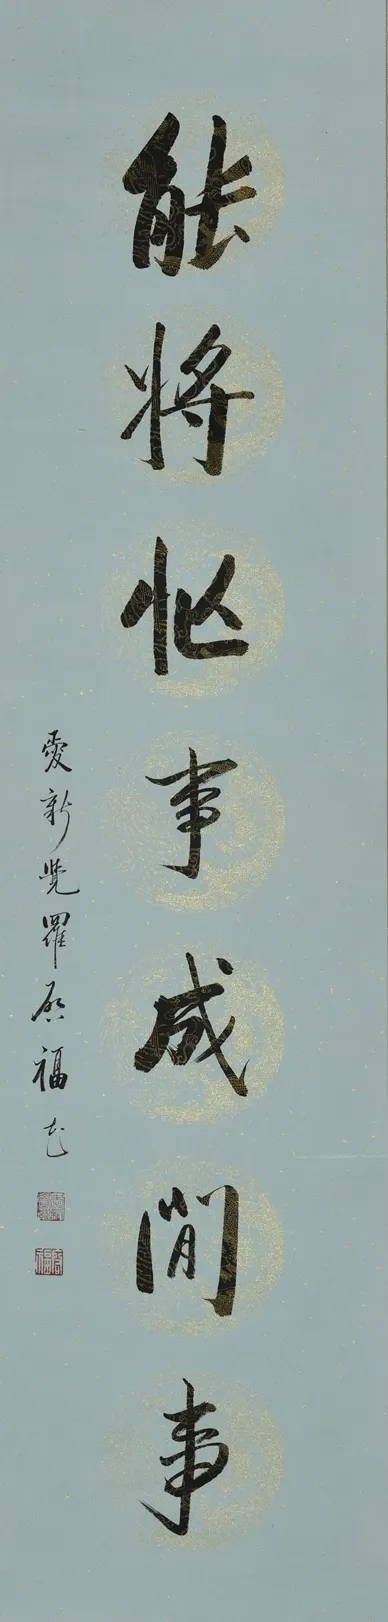 能將忙事成閒事
愛新覺羅啟福書